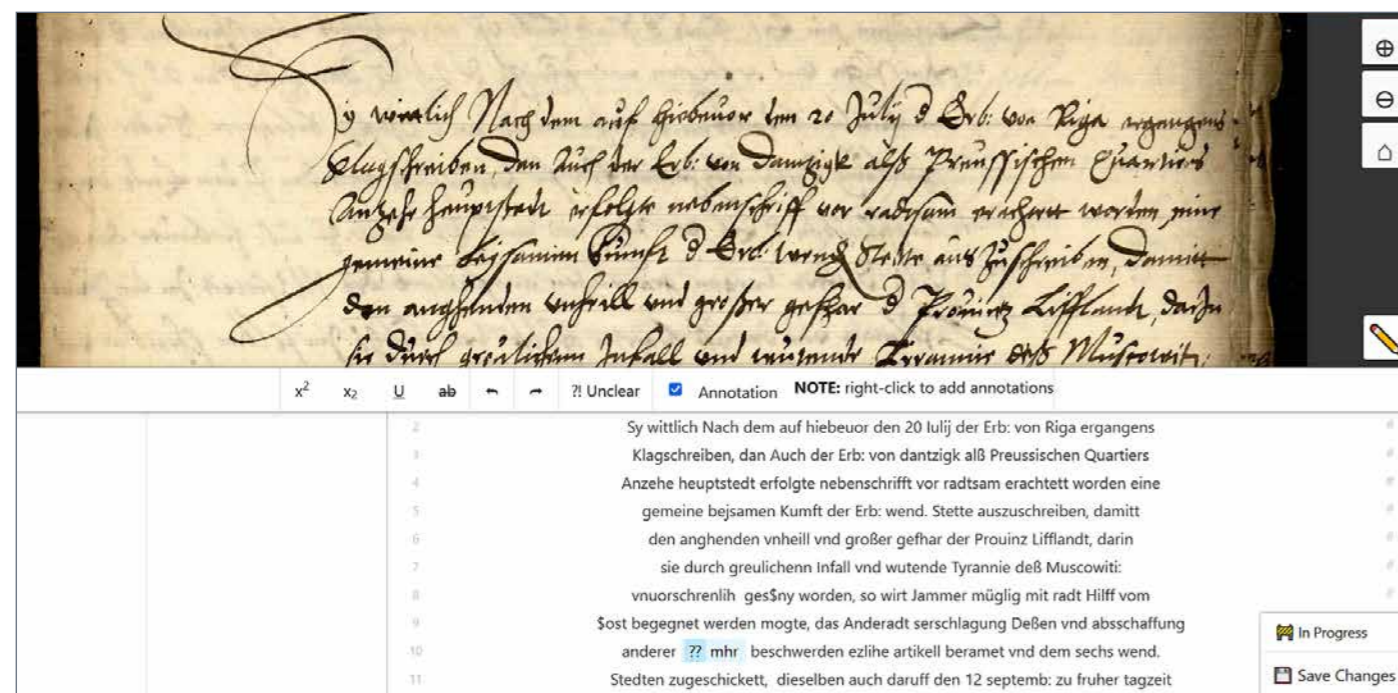 Sy wittlich Nach dem auf hiebeuor den 20 Julij d Erb: von Riga ergangens
Klagschreiben, dan Auch der Erb: von Dantzigk alß Preussischen Quartiers
Anzehe heuptstedt erfolgte nebenschrifft vor radtsam erachtett worden eine
gemeine beysamen Kumft d Erb: wend Stette auszuschreiben, damitt
den anghenden vnheill vnd großer gefhar d Prouintz Lifflandt, darin
sie durch greulichenn Infall vnd wutende Tyrannie deß Muscowit:
x² x₂ U ab ?! Unclear Annotation NOTE: right-click to add annotations
2 Sy wittlich Nach dem auf hiebeuor den 20 Iulij der Erb: von Riga ergangens
3 Klagschreiben, dan Auch der Erb: von dantzigk alß Preussischen Quartiers
4 Anzehe heuptstedt erfolgte nebenschrifft vor radtsam erachtett worden eine
5 gemeine bejsamen Kumft der Erb: wend. Stette auszuschreiben, damitt
6 den anghenden vnheill vnd großer gefhar der Prouinz Lifflandt, darin
7 sie durch greulichenn Infall vnd wutende Tyrannie deß Muscowiti:
8 vnuorschrenlih ges$ny worden, so wirt Jammer müglig mit radt Hilff vom
9 $ost begegnet werden mogte, das Anderadt serschlagung Deßen vnd absschaffung
10 anderer ?? mhr beschwerden ezlihe artikell beramet vnd dem sechs wend.
11 Stedten zugeschickett, dieselben auch daruff den 12 septemb: zu fruher tagzeit
In Progress
Save Changes